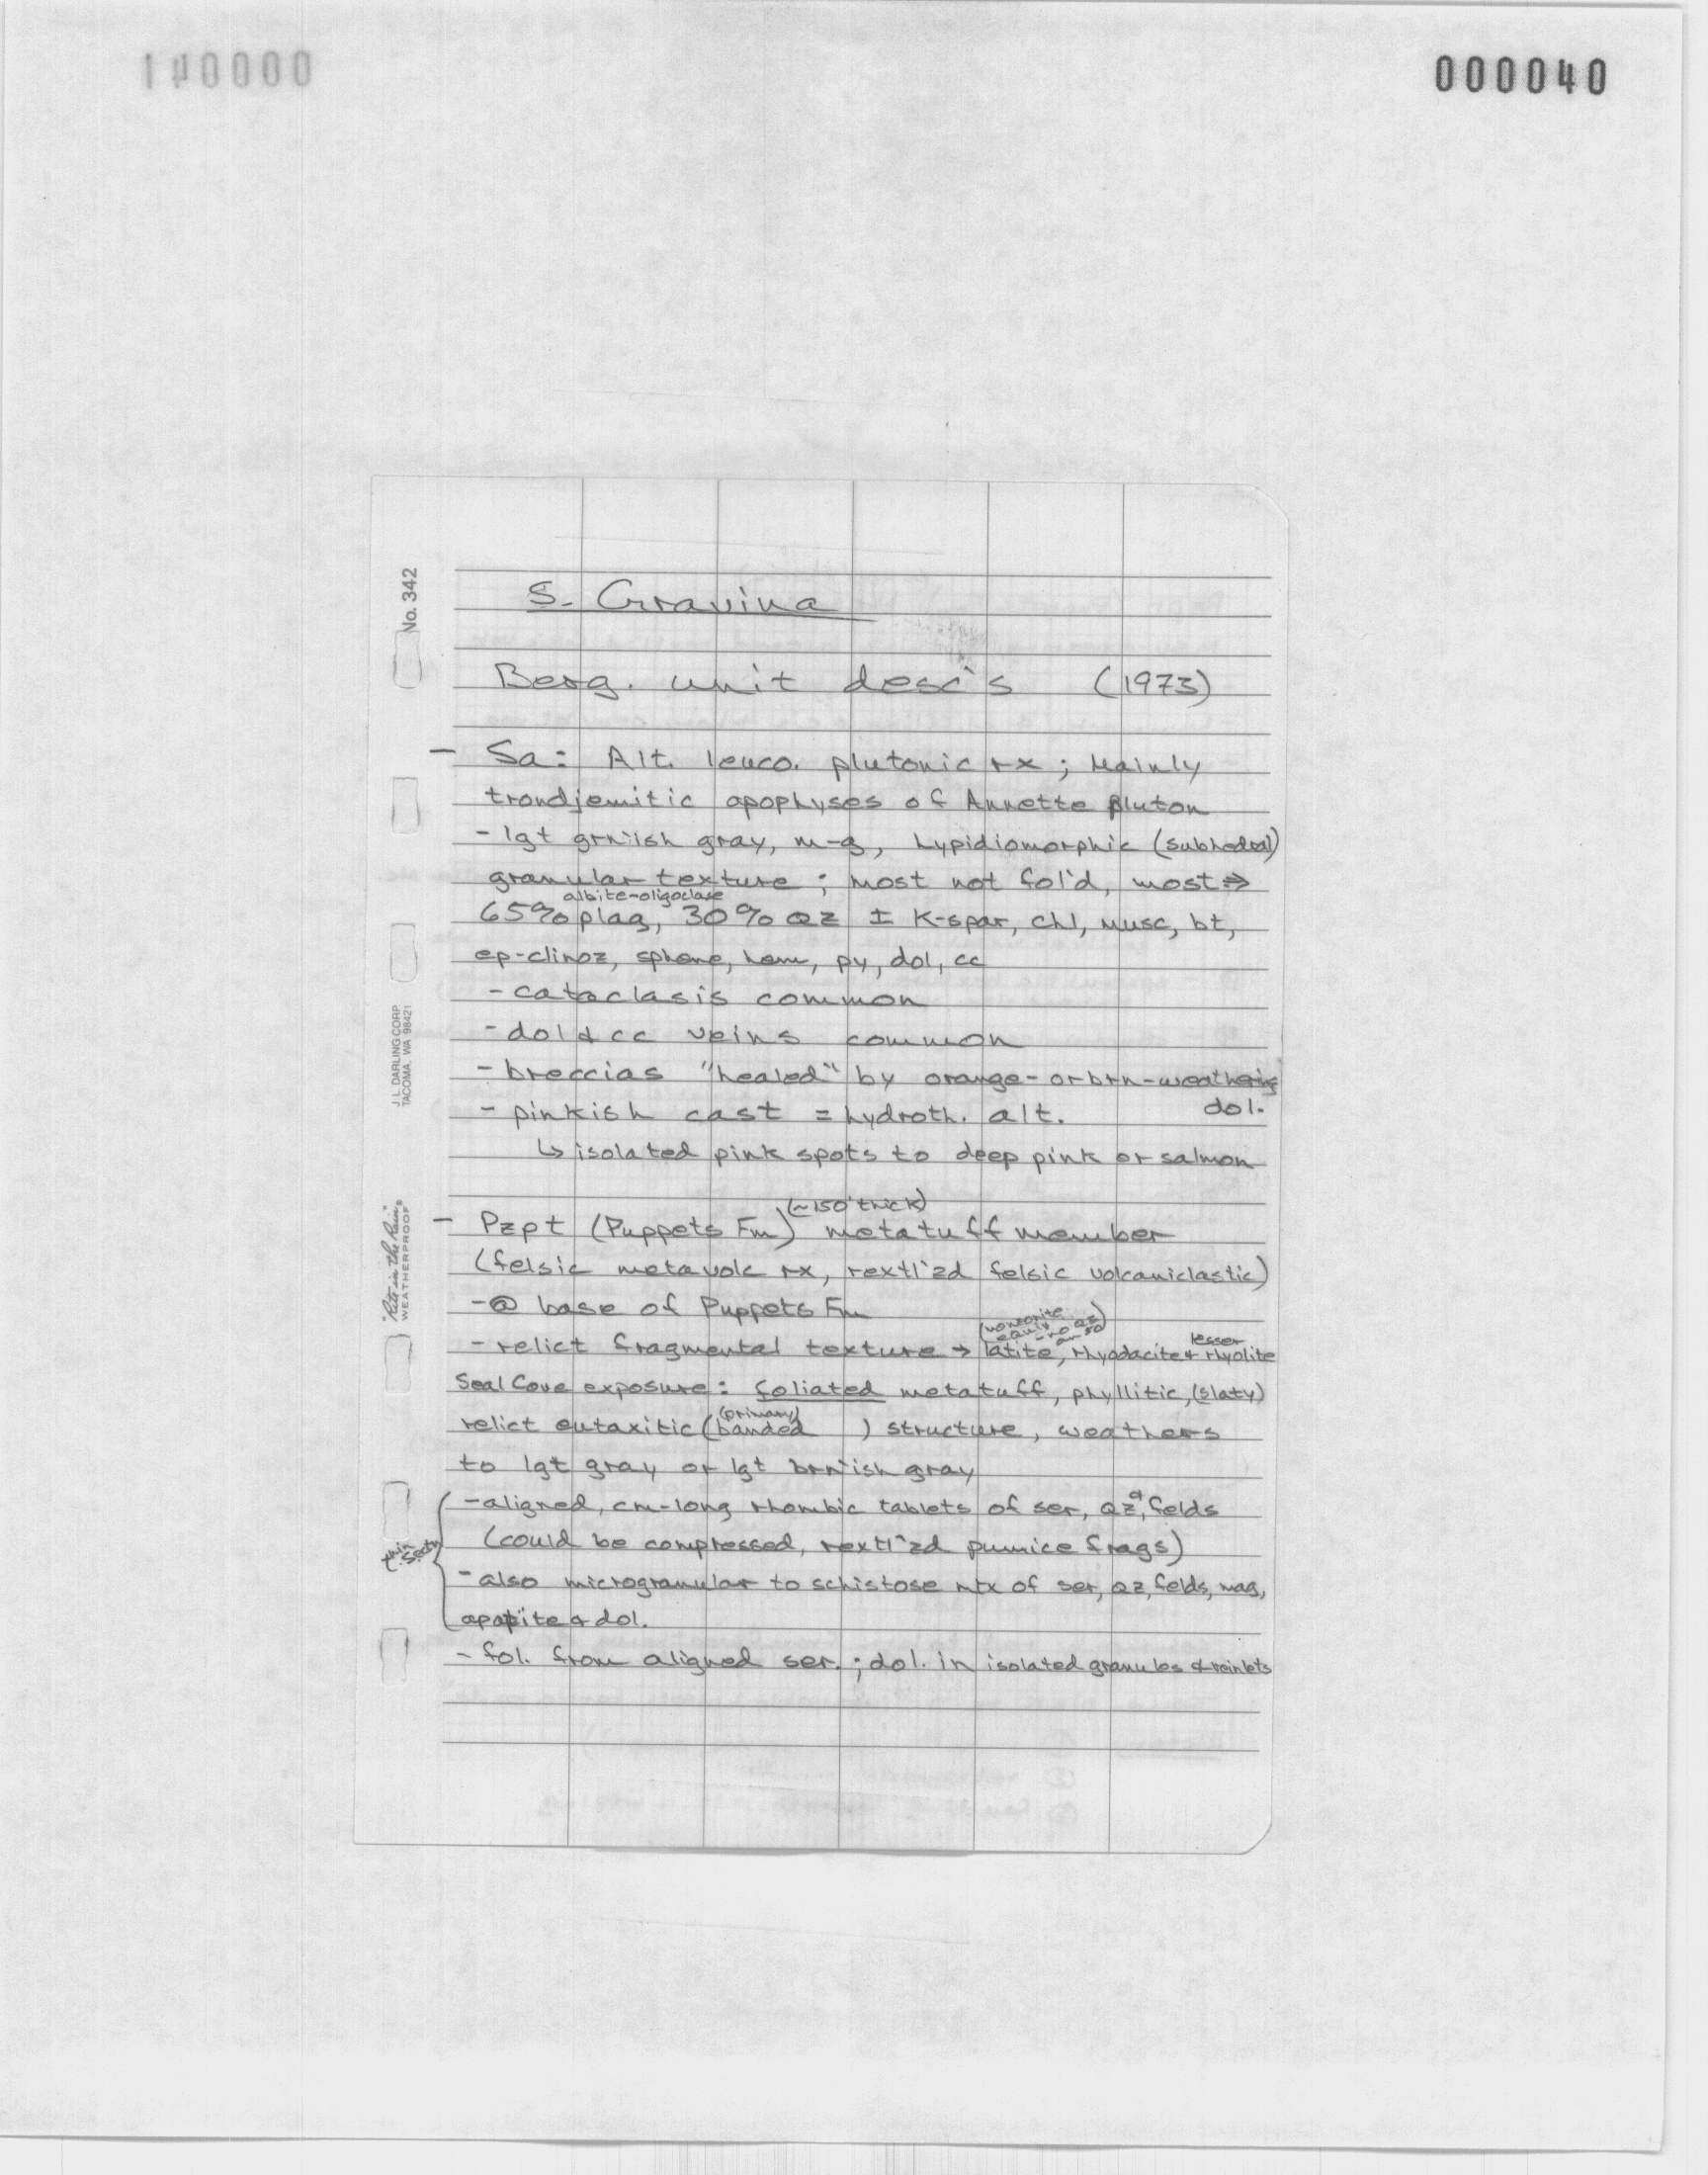 000040
No. 342
S. Gravina
Berg. unit desc's (1973)
- Sa: Alt. leuco. plutonic rx; Mainly
trondjemitic apophyses of Annette pluton
- lgt grn'ish gray, m-g, hypidiomorphic (subhedral)
granular texture; most not fol'd, most ⇒
albite-oligoclase
65% plag, 30% Qz ± K-spar, chl, musc, bt,
ep-clinoz, sphene, hem, py, dol, cc
- cataclasis common
- dol & cc veins common
- breccias "healed" by orange- or brn-weathering
dol.
- pinkish cast = hydroth. alt.
↳ isolated pink spots to deep pink or salmon
(~150' thick)
- Pzpt (Puppets Fm) metatuff member
(felsic metavolc rx, rextl'zd felsic volcaniclastic)
- @ base of Puppets Fm
(monzonite
equiv - no qz
lesser
- relict fragmental texture → latite, rhyodacite & rhyolite
Seal Cove exposure: foliated metatuff, phyllitic, (slaty)
(primary)
relict eutaxitic (banded ) structure, weathers
to lgt gray or lgt brn'ish gray
- aligned, cm-long rhombic tablets of ser, Qz, & felds
(could be compressed, rextl'zd pumice frags)
thin
sectn
- also microgranular to schistose mtx of ser, Qz, felds, mag,
apatite & dol.
- fol. from aligned ser.; dol. in isolated granules & veinlets
J.L. DARLING CORP.
TACOMA, WA 98421
"Rite in the Rain"
WEATHERPROOF